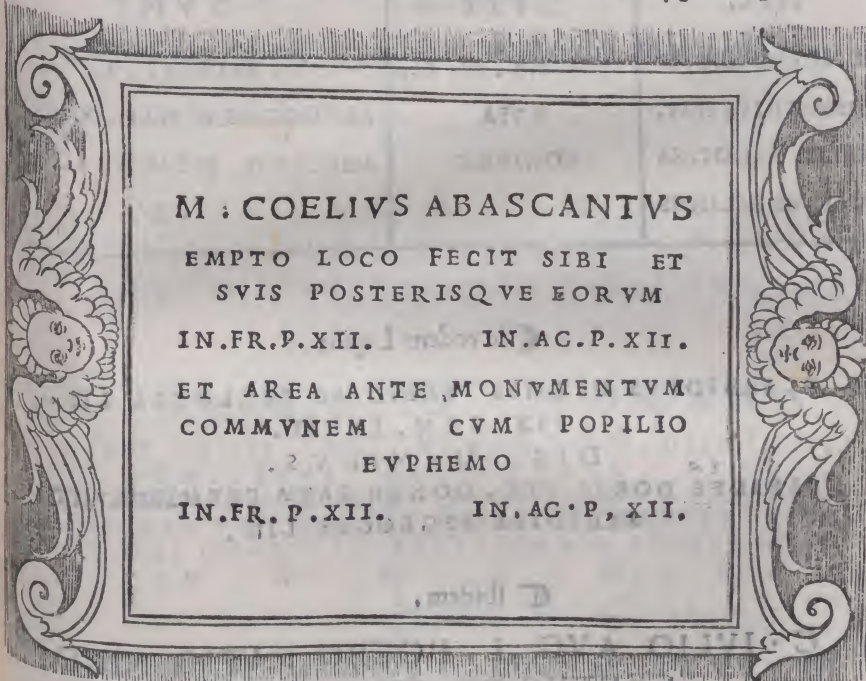 M : COELIVS ABASCANTVS
EMPTO LOCO FECIT SIBI ET
SVIS POSTERISQVE EORVM
IN.FR.P.XII. IN.AG.P.XII.
ET AREA ANTE MONVMENTVM
COMMVNEM CVM POPILIO
EVPHEMO
IN.FR. P.XII. IN.AG·P,XII.